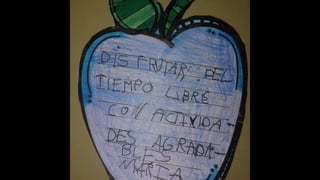 DISFRUTAR DEL
TIEMPO LIBRE
CON ACTIVIDA-
DES AGRADA-
BLES
MARÍA